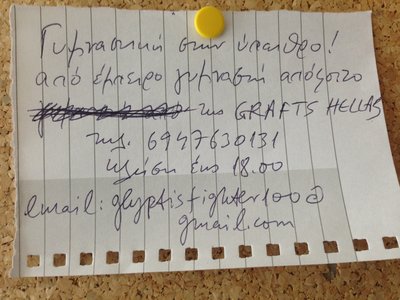 Γυμναστική στην ύπαιθρο!
από έμπειρο γυμναστή απόφοιτο
της GRAFTS HELLAS
τηλ. 6947630131
κλήση έως 18.00
email: glyptisfighter100@
gmail.com